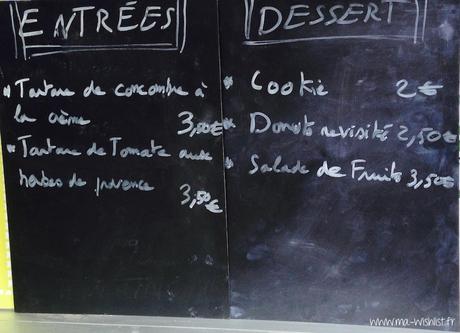 ENTRÉES
* Tartare de concombre à
la crème
3,50€
* Tartare de Tomate aux
herbes de provence
3,50€
DESSERT
* Cookie 2€
* Donuts revisité 2,50€
* Salade de Fruits 3,50€
www.ma-wishlist.fr